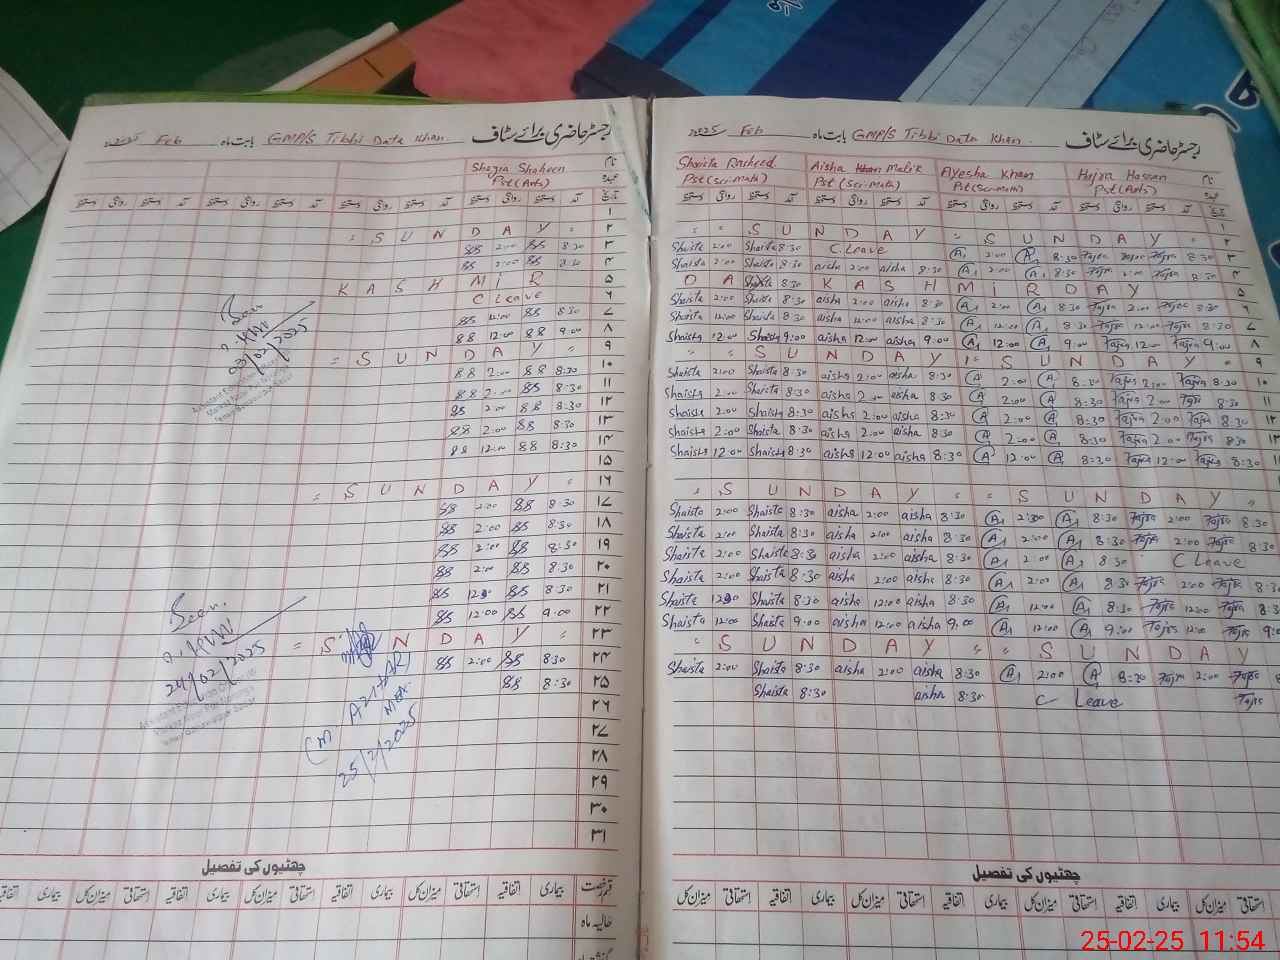 رجسٹر حاضری برائے سٹاف بابت ماہ GMP/S Tibbi Data Khan. Feb 2025
نام Shazia Shaheen
عہدہ Pst (Arts)
تاریخ آمد دستخط روانگی دستخط آمد دستخط روانگی دستخط آمد دستخط روانگی دستخط آمد دستخط روانگی دستخط
۱
۲ " S U N D A Y "
۳ 8:30 SS 2:00 SS
۴ 8:30 SS 2:00 SS
۵ K A S H M I R
۶ C Leave
۷ 8:30 SS 12:00 SS
۸ 9:00 SS 12:00 SS
۹ = S U N D A Y "
۱۰ 8:30 SS 2:00 SS
۱۱ 8:30 SS 2:00 SS
۱۲ 8:30 SS 2:00 SS
۱۳ 8:30 SS 2:00 SS
۱۴ 8:30 SS 12:00 SS
۱۵
۱۶ = S U N D A Y "
۱۷ 8:30 SS 2:00 SS
۱۸ 8:30 SS 2:00 SS
۱۹ 8:30 SS 2:00 SS
۲۰ 8:30 SS 2:00 SS
۲۱ 8:30 SS 1200 SS
۲۲ 9:00 SS 12:00 SS
۲۳ = S U N D A Y "
۲۴ 830 SS 2:00 SS
۲۵ 8:30 SS
۲۶
۲۷
۲۸
۲۹
۳۰
۳۱
Seen
03/02/2025
Seen.
24/02/2025
(M AZHAR)
MEA
25/2/2025
چھٹیوں کی تفصیل
قسم رخصت بیماری اتفاقیہ استحقاقی میزان کل بیماری اتفاقیہ استحقاقی میزان کل بیماری اتفاقیہ استحقاقی میزان کل بیماری اتفاقیہ
حالیہ ماہ
رجسٹر حاضری برائے سٹاف بابت ماہ GMP/S Tibbi Data Khan. Feb 2025
نام Hajra Hassan Ayesha Khan Aisha Khan Malik Shaista Rasheed
عہدہ Pst (Arts) Pst (Sci-Math) Pst (Sci-Math) Pst (Sci-Math)
تاریخ آمد دستخط روانگی دستخط آمد دستخط روانگی دستخط آمد دستخط روانگی دستخط آمد دستخط روانگی دستخط
۱
۲ " S U N D A Y " " S U N D A Y "
۳ Shaista 2:00 Shaista 8:30 C.Leave A 2:00 A 8:30 Hajra 2:00 Hajra 8:30
۴ Shaista 2:00 Shaista 8:30 aisha 2:00 aisha 8:30 A 2:00 A 8:30 Hajra 2:00 Hajra 8:30
۵ D A Shaista 8:30 K A S H M I R D A Y
۶ Shaista 2:00 Shaista 8:30 aisha 2:00 aisha 8:30 A 2:00 A 8:30 Hajra 2:00 Hajra 8:30
۷ Shaista 12:00 Shaista 8:30 aisha 12:00 aisha 8:30 A 12:00 A 8:30 Hajra 12:00 Hajra 8:30
۸ Shaista 12:00 Shaista 9:00 aisha 12:00 aisha 9:00 A 12:00 A 9:00 Hajra 12:00 Hajra 9:00
۹ " " S U N D A Y " " S U N D A Y "
۱۰ Shaista 2:00 Shaista 8:30 aisha 2:00 aisha 8:30 A 2:00 A 8:30 Hajra 2:00 Hajra 8:30
۱۱ Shaista 2:00 Shaista 8:30 aisha 2:00 aisha 8:30 A 2:00 A 8:30 Hajra 2:00 Hajra 8:30
۱۲ Shaista 2:00 Shaista 8:30 aisha 2:00 aisha 8:30 A 2:00 A 8:30 Hajra 2:00 Hajra 8:30
۱۳ Shaista 2:00 Shaista 8:30 aisha 2:00 aisha 8:30 A 2:00 A 8:30 Hajra 2:00 Hajra 8:30
Shaista 12:00 Shaista 8:30 aisha 12:00 aisha 8:30 A 12:00 A 8:30 Hajra 12:00 Hajra 8:30
" S U N D A Y " " S U N D A Y "
Shaista 2:00 Shaista 8:30 aisha 2:00 aisha 8:30 A 2:00 A 8:30 Hajra 2:00 Hajra 8:30
Shaista 2:00 Shaista 8:30 aisha 2:00 aisha 8:30 A 2:00 A 8:30 Hajra 2:00 Hajra 8:30
Shaista 2:00 Shaista 8:30 aisha 2:00 aisha 8:30 A 2:00 A 8:30 C Leave
Shaista 2:00 Shaista 8:30 aisha 2:00 aisha 8:30 A 2:00 A 8:30 Hajra 2:00 Hajra 8:30
Shaista 1200 Shaista 8:30 aisha 12:00 aisha 8:30 A 12:00 A 8:30 Hajra 12:00 Hajra 8:3
Shaista 12:00 Shaista 9:00 aisha 12:00 aisha 9:00 A 12:00 A 9:00 Hajra 12:00 Hajra 9:
" S U N D A Y " " S U N D A Y
Shaista 2:00 Shaista 8:30 aisha 2:00 aisha 8:30 A 2:00 A 8:30 Hajra 2:00 Hajra 8
Shaista 8:30 aisha 8:30 C Leave Hajra
چھٹیوں کی تفصیل
استحقاقی میزان کل بیماری اتفاقیہ استحقاقی میزان کل بیماری اتفاقیہ استحقاقی میزان کل بیماری اتفاقیہ استحقاقی میزان کل
25-02-25 11:54